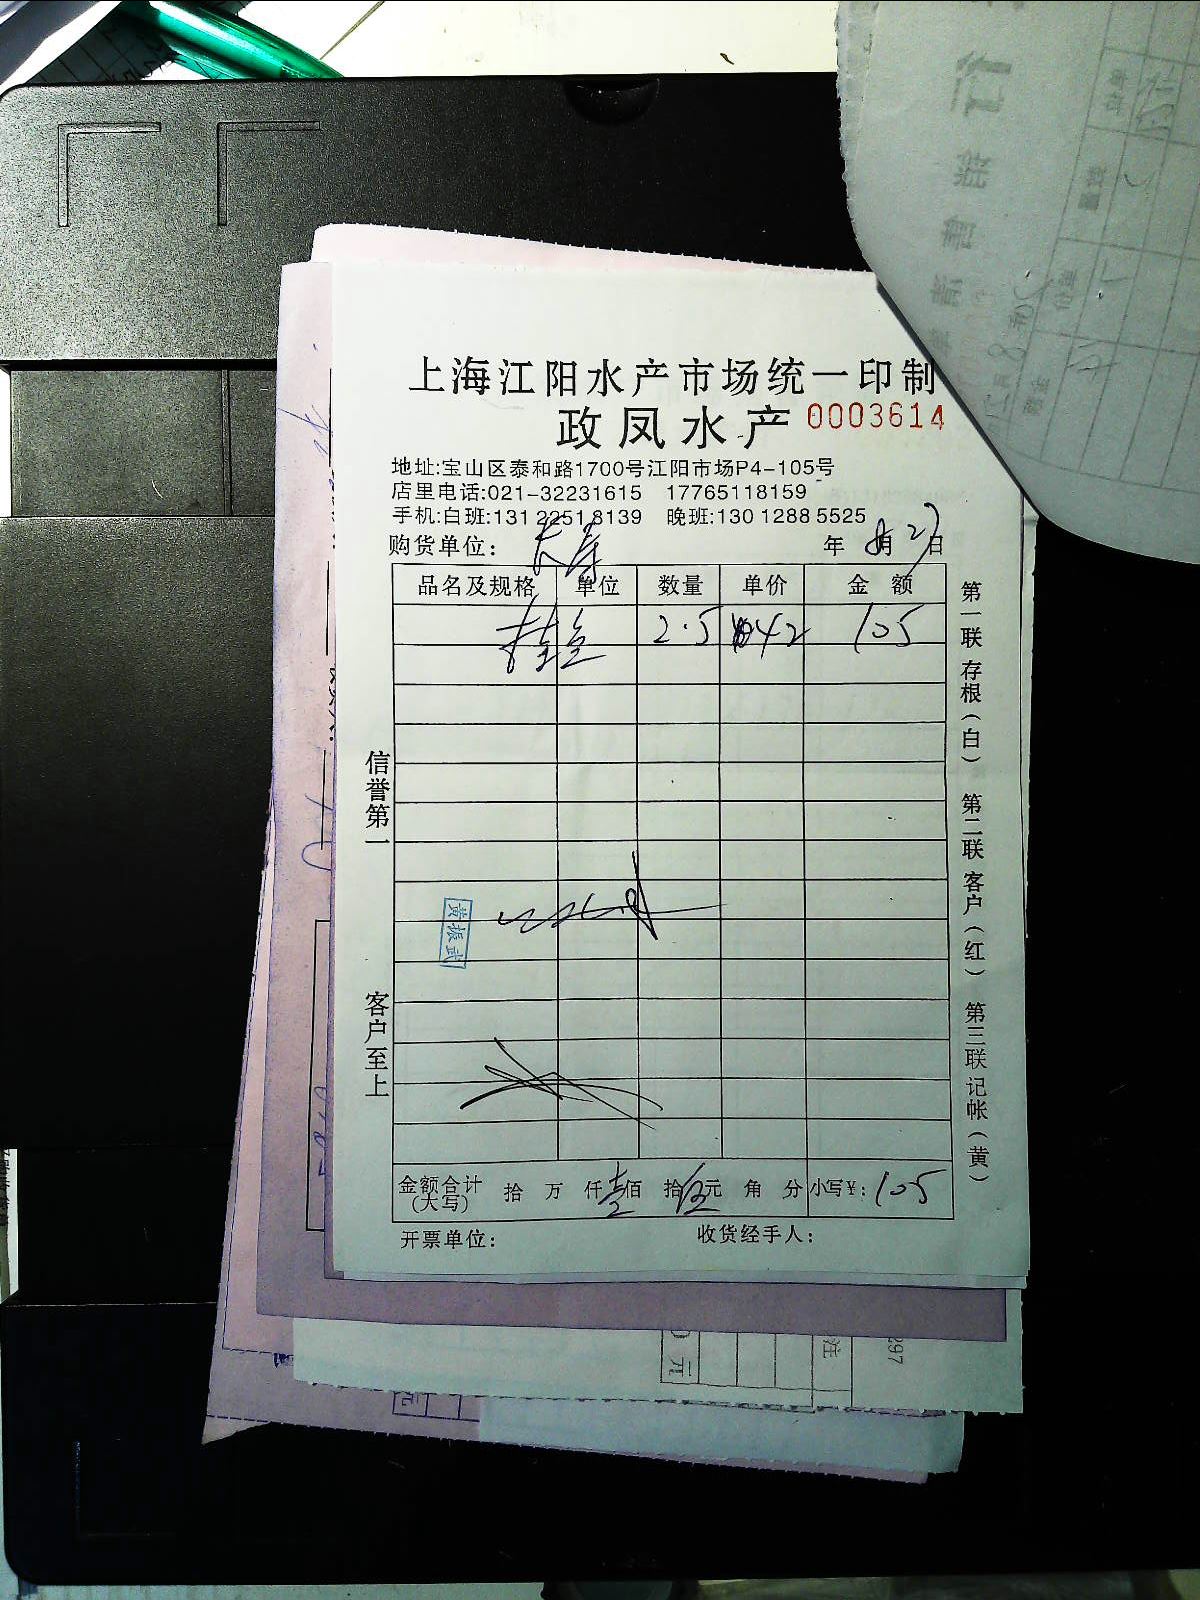 上海江阳水产市场统一印制
政凤水产 0003614
地址:宝山区泰和路1700号江阳市场P4-105号
店里电话:021-32231615 17765118159
手机:白班:131 2251 8139 晚班:130 1288 5525
购货单位: 长寿 年 8月27日
品名及规格 单位 数量 单价 金额
桂鱼 2.5 42 105
信誉第一
客户至上
黄振武
第一联 存根(白) 第二联 客户(红) 第三联 记帐(黄)
金额合计(大写) 拾 万 仟 壹佰 拾 伍元 角 分 小写¥: 105
开票单位: 收货经手人:
297
注
元